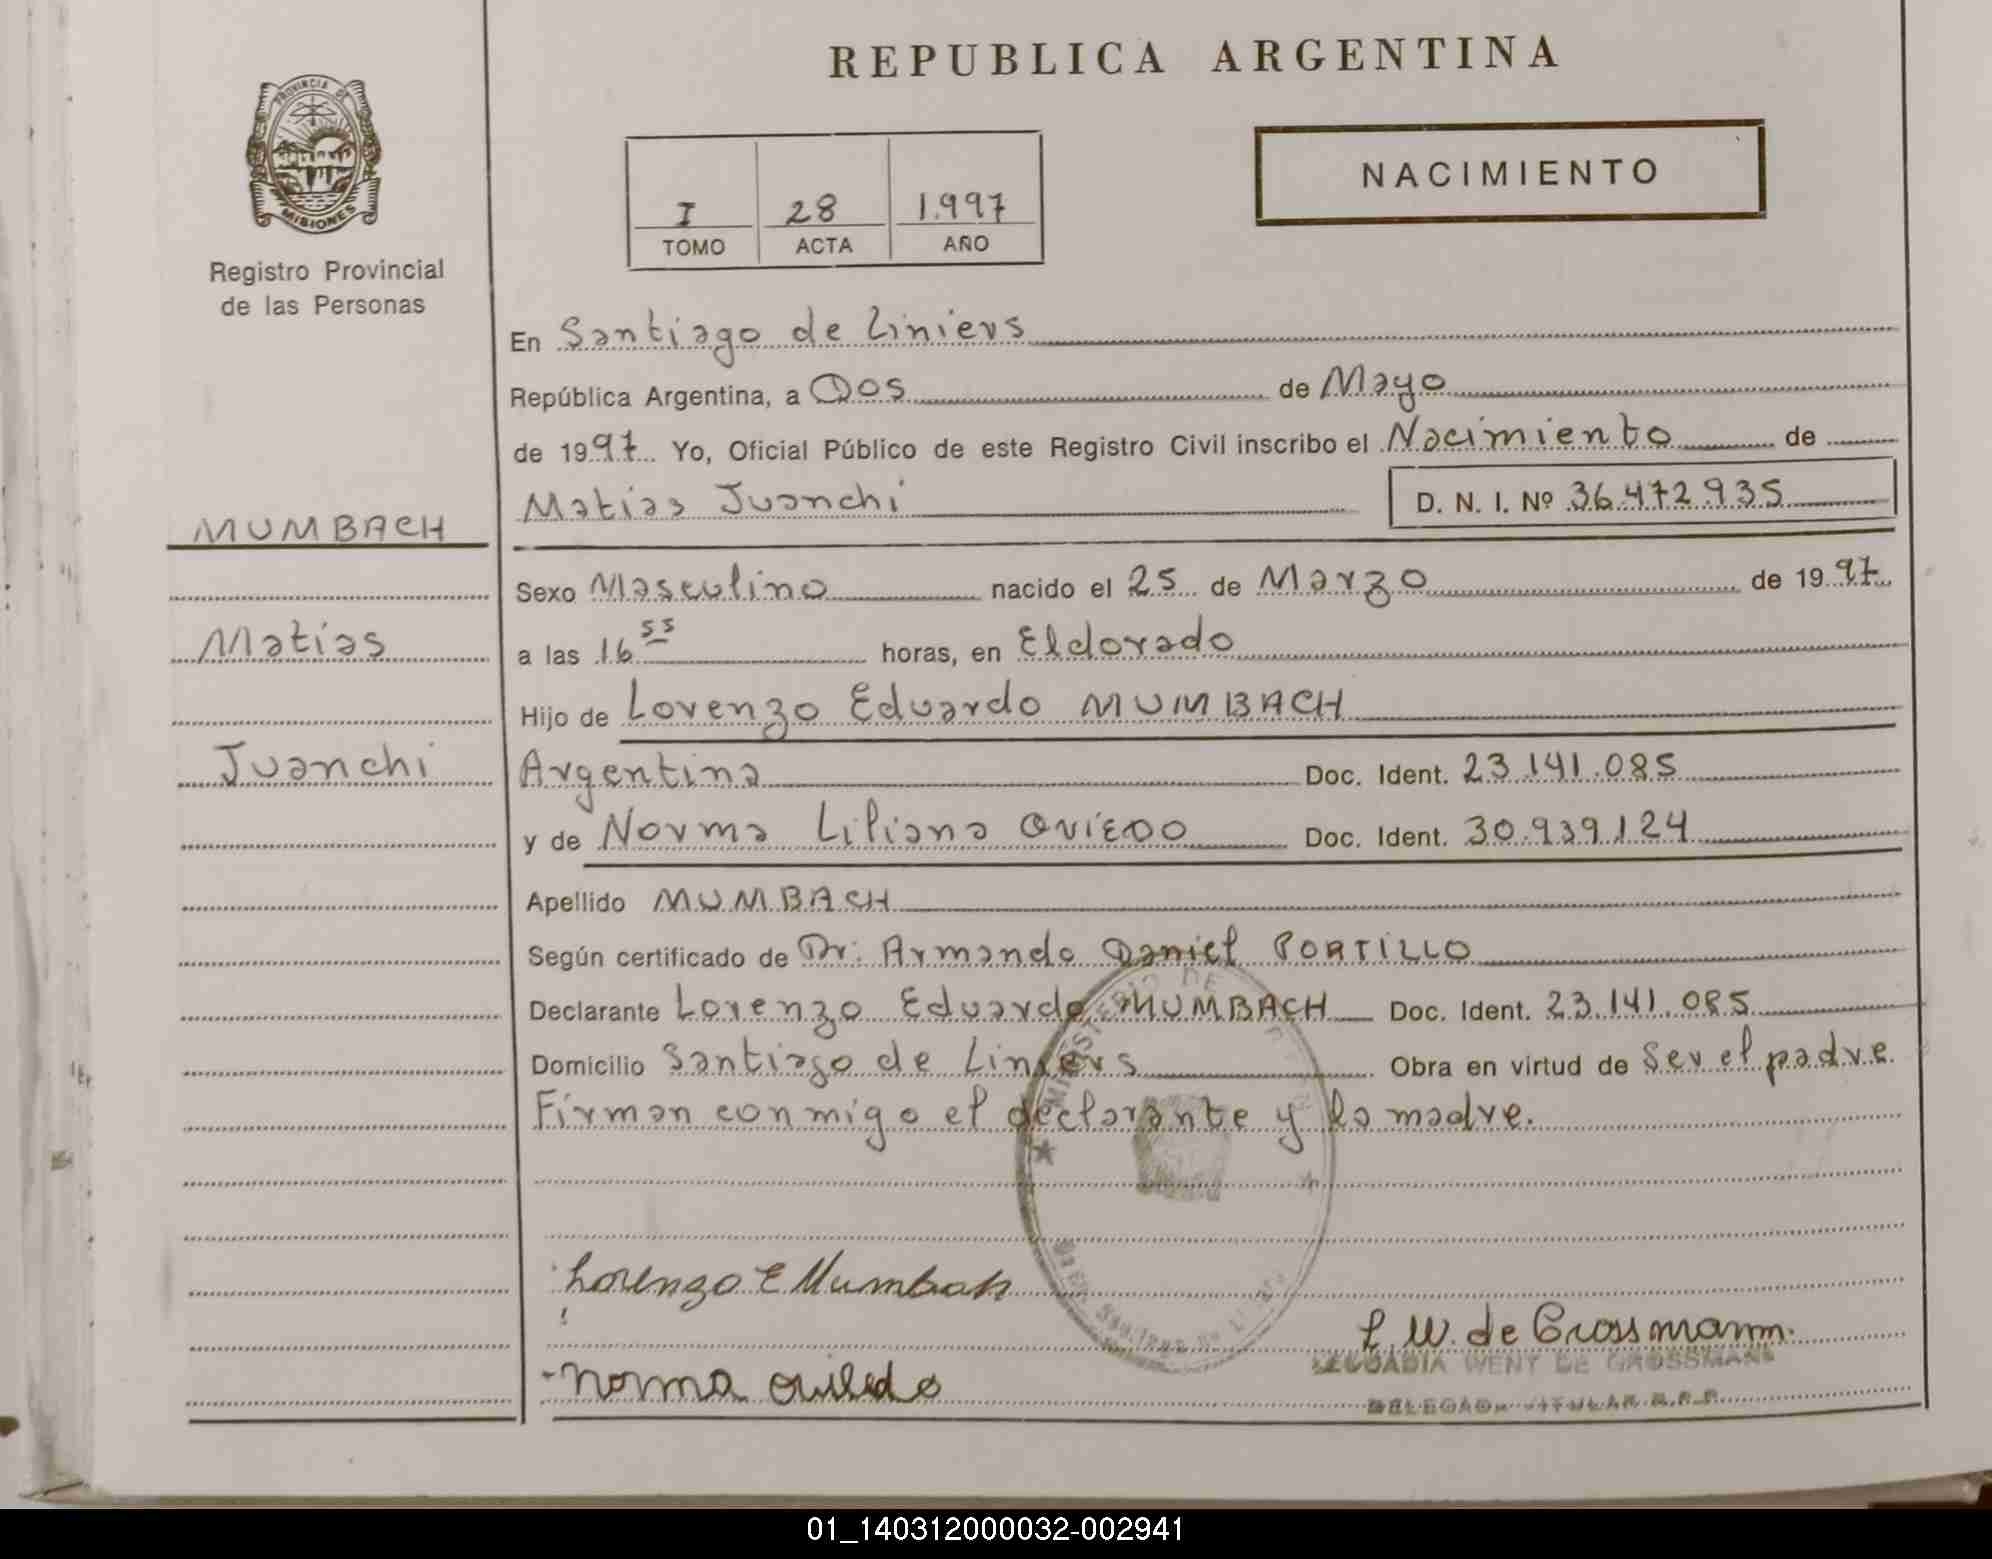 REPUBLICA ARGENTINA
PROVINCIA DE
MISIONES
Registro Provincial
de las Personas
I 28 1.997
TOMO ACTA AÑO
NACIMIENTO
En Santiago de Liniers
República Argentina, a Dos de Mayo
de 1997 Yo, Oficial Público de este Registro Civil inscribo el Nacimiento de
Matias Juanchi D. N. I. Nº 36.472.935
MUMBACH
Matias
Juanchi
Sexo Masculino nacido el 25 de Marzo de 1997
a las 16 55 horas, en Eldorado
Hijo de Lorenzo Eduardo MUMBACH
Argentina Doc. Ident. 23.141.085
y de Norma Liliana OVIEDO Doc. Ident. 30.939.124
Apellido MUMBACH
Según certificado de Dr. Armando Daniel PORTILLO
Declarante Lorenzo Eduardo MUMBACH Doc. Ident. 23.141.085
Domicilio Santiago de Liniers Obra en virtud de Ser el padre.
Firman conmigo el declarante y la madre.
MINISTERIO DE
Lorenzo E Mumbach
L W. de Grossmann.
WENT DE GROSSMANN
Norma oviedo
01_140312000032-002941